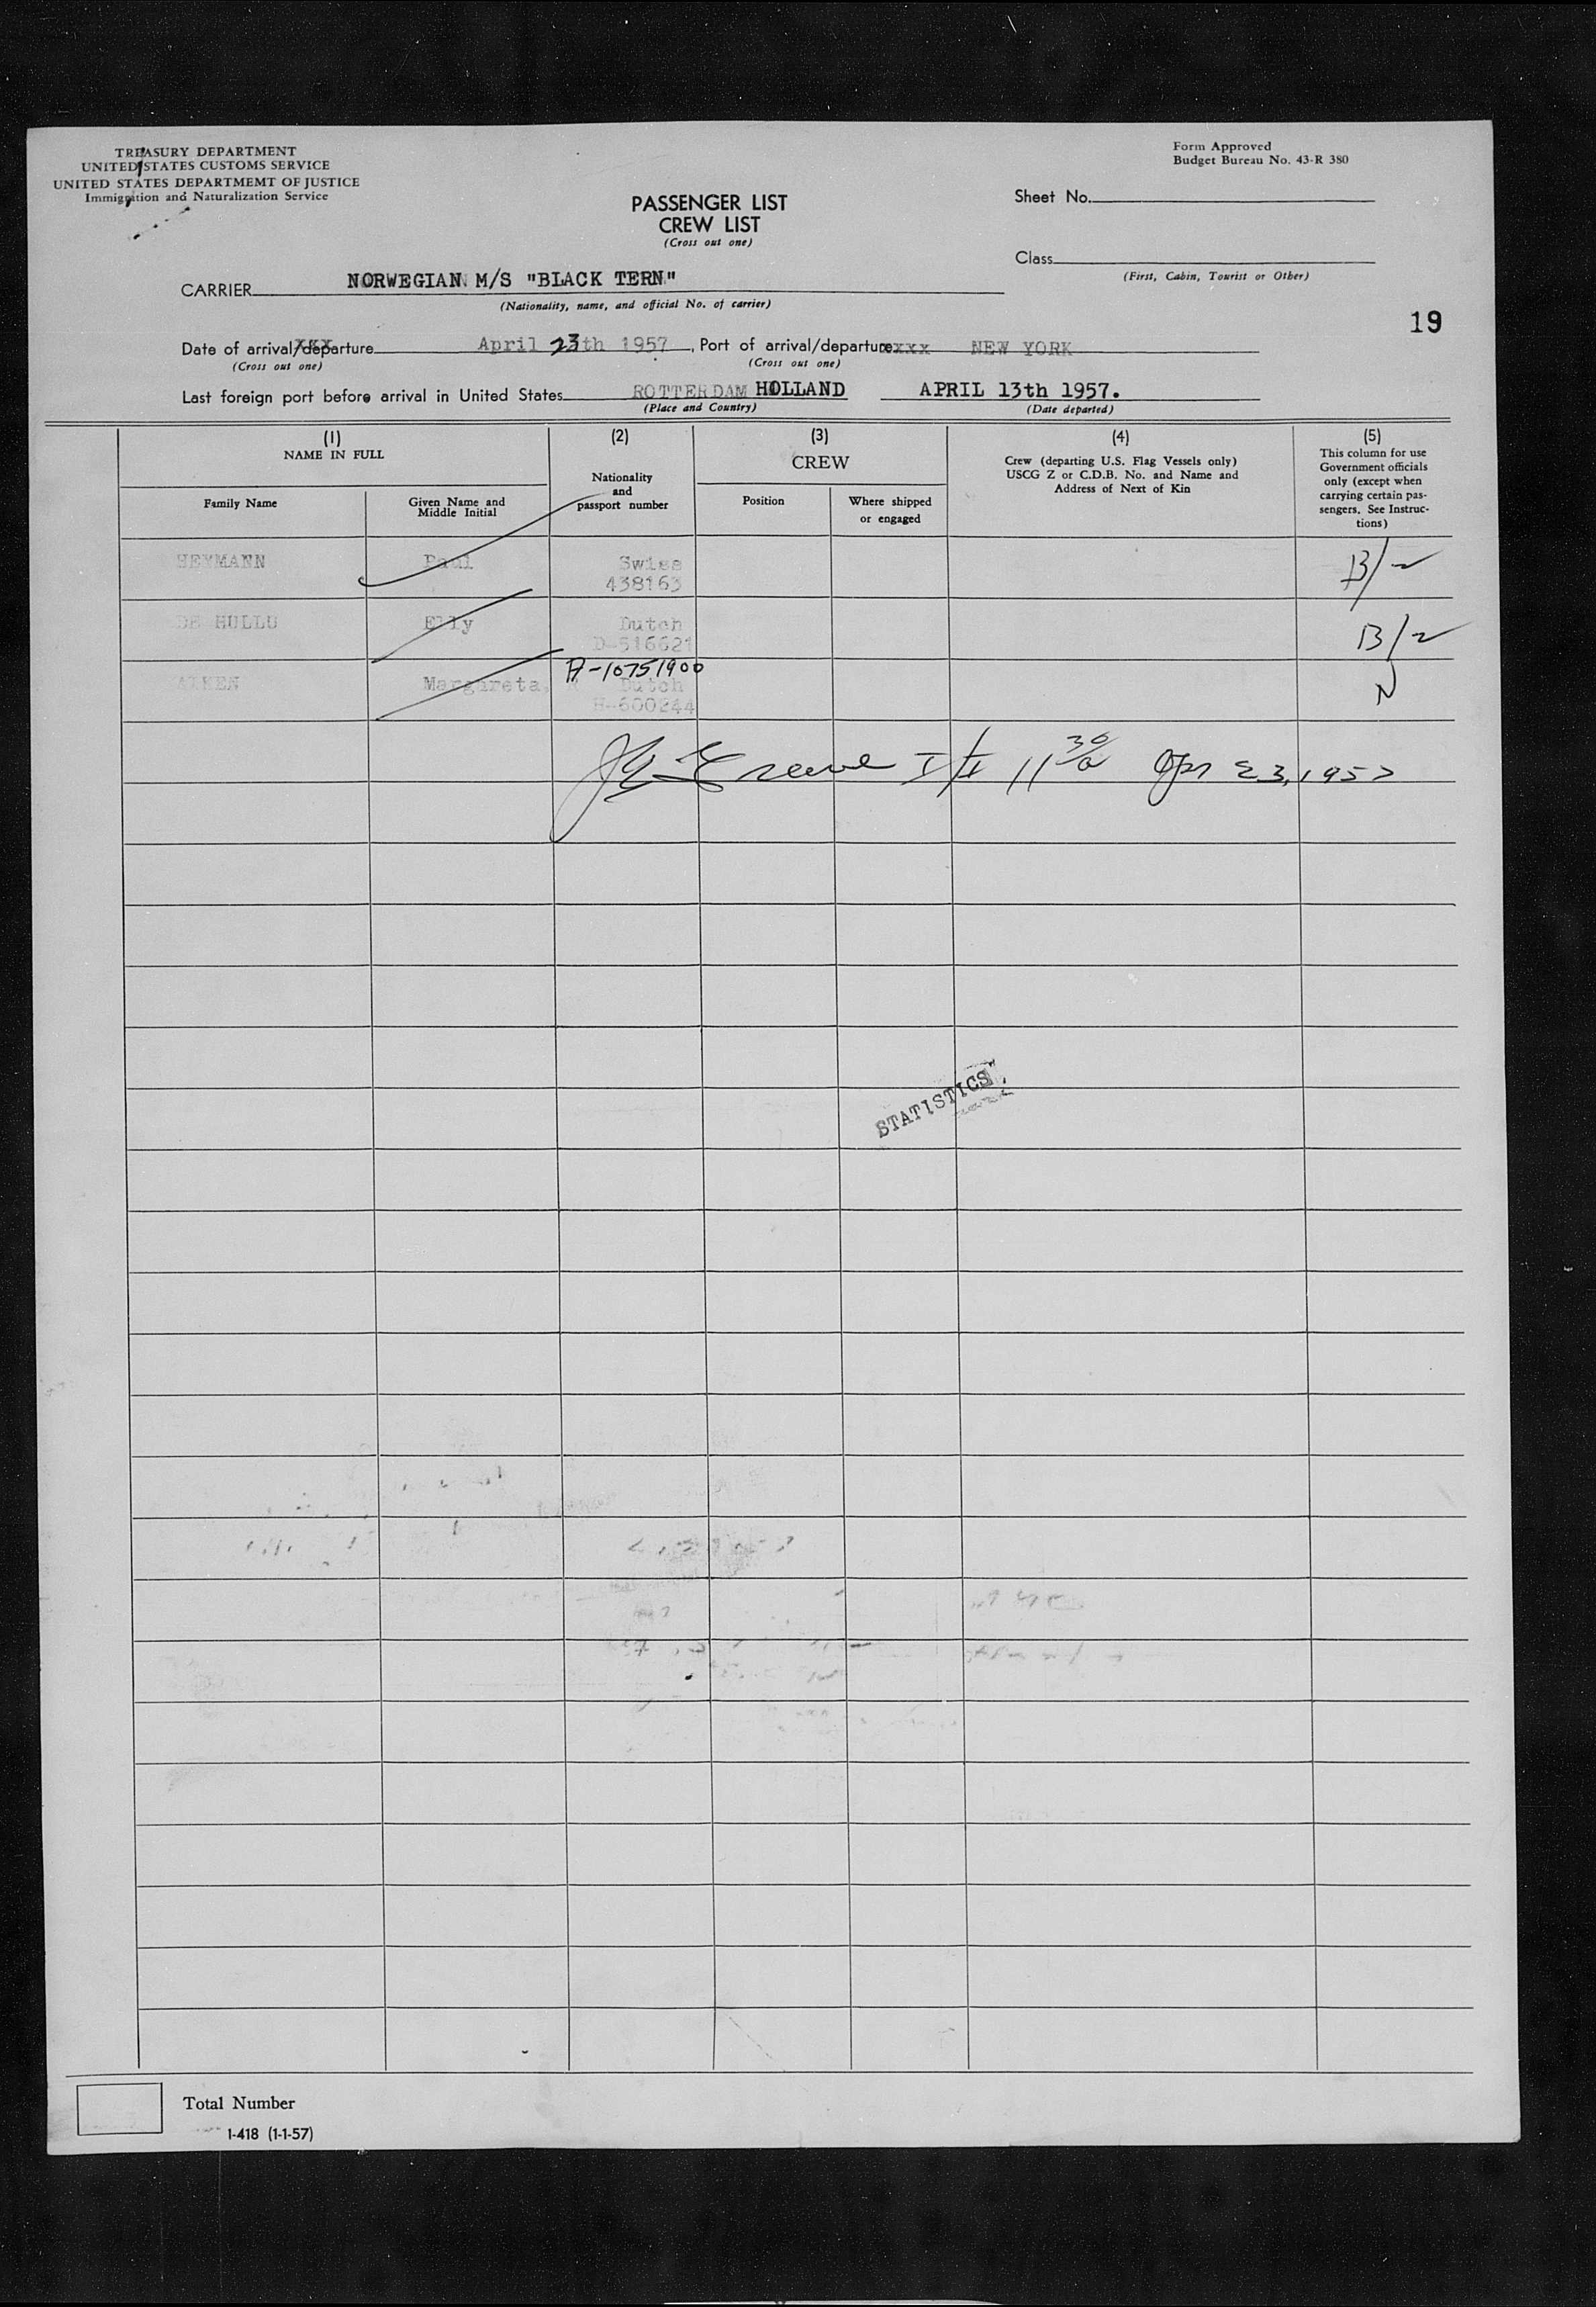 TREASURY DEPARTMENT
UNITED STATES CUSTOMS SERVICE
UNITED STATES DEPARTMEMT OF JUSTICE
Immigration and Naturalization Service
Form Approved
Budget Bureau No. 43-R 380
PASSENGER LIST
CREW LIST
(Cross out one)
Sheet No.
Class
(First, Cabin, Tourist or Other)
CARRIER NORWEGIAN M/S "BLACK TERN"
(Nationality, name, and official No. of carrier)
19
Date of arrival/departure April 23th 1957, Port of arrival/departure xxx NEW YORK
(Cross out one) (Cross out one)
Last foreign port before arrival in United States ROTTERDAM HOLLAND APRIL 13th 1957.
(Place and Country) (Date departed)
(1) (2) (3) (4) (5)
NAME IN FULL
Family Name
Given Name and
Middle Initial
Nationality
and
passport number
CREW
Position
Where shipped
or engaged
Crew (departing U.S. Flag Vessels only)
USCG Z or C.D.B. No. and Name and
Address of Next of Kin
This column for use
Government officials
only (except when
carrying certain pas-
sengers. See Instruc-
tions)
HEYMANN Paul Swiss B/2
438163
DE HULLU Elly Dutch B/2
D-516621
A-10751900
Margareta. Dutch N
H-600244
11 30 Apr 23, 1957
STATISTICS
Total Number
I-418 (1-1-57)